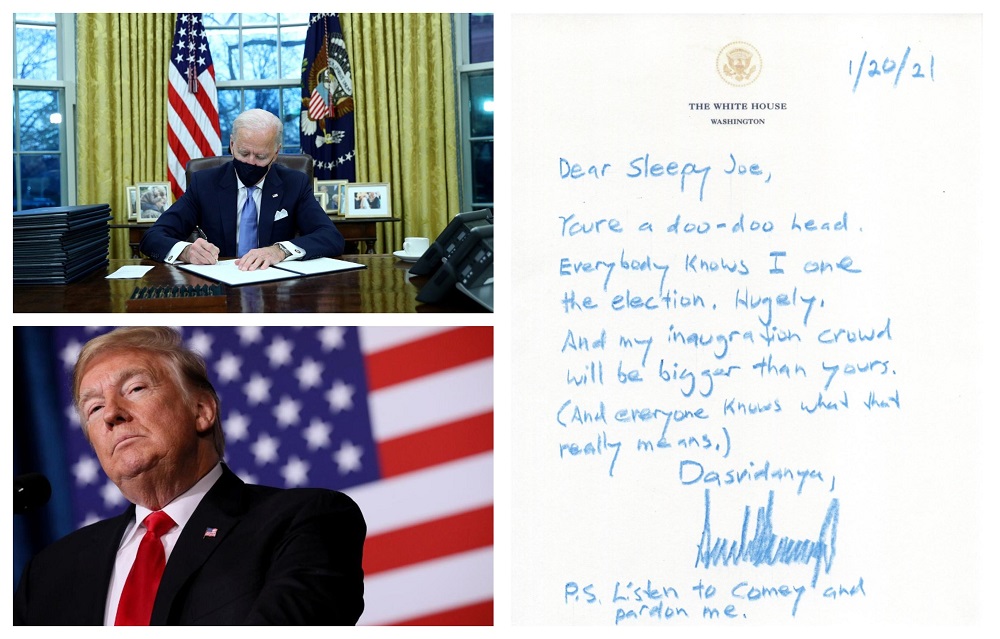 1/20/21
THE WHITE HOUSE
WASHINGTON
Dear Sleepy Joe,
Youre a doo-doo head.
Everybody knows I one
the election. Hugely.
And my inaugration crowd
will be bigger than yours.
(And everyone knows what that
really means.)
Dasvidanya,
P.S. Listen to Comey and
pardon me.